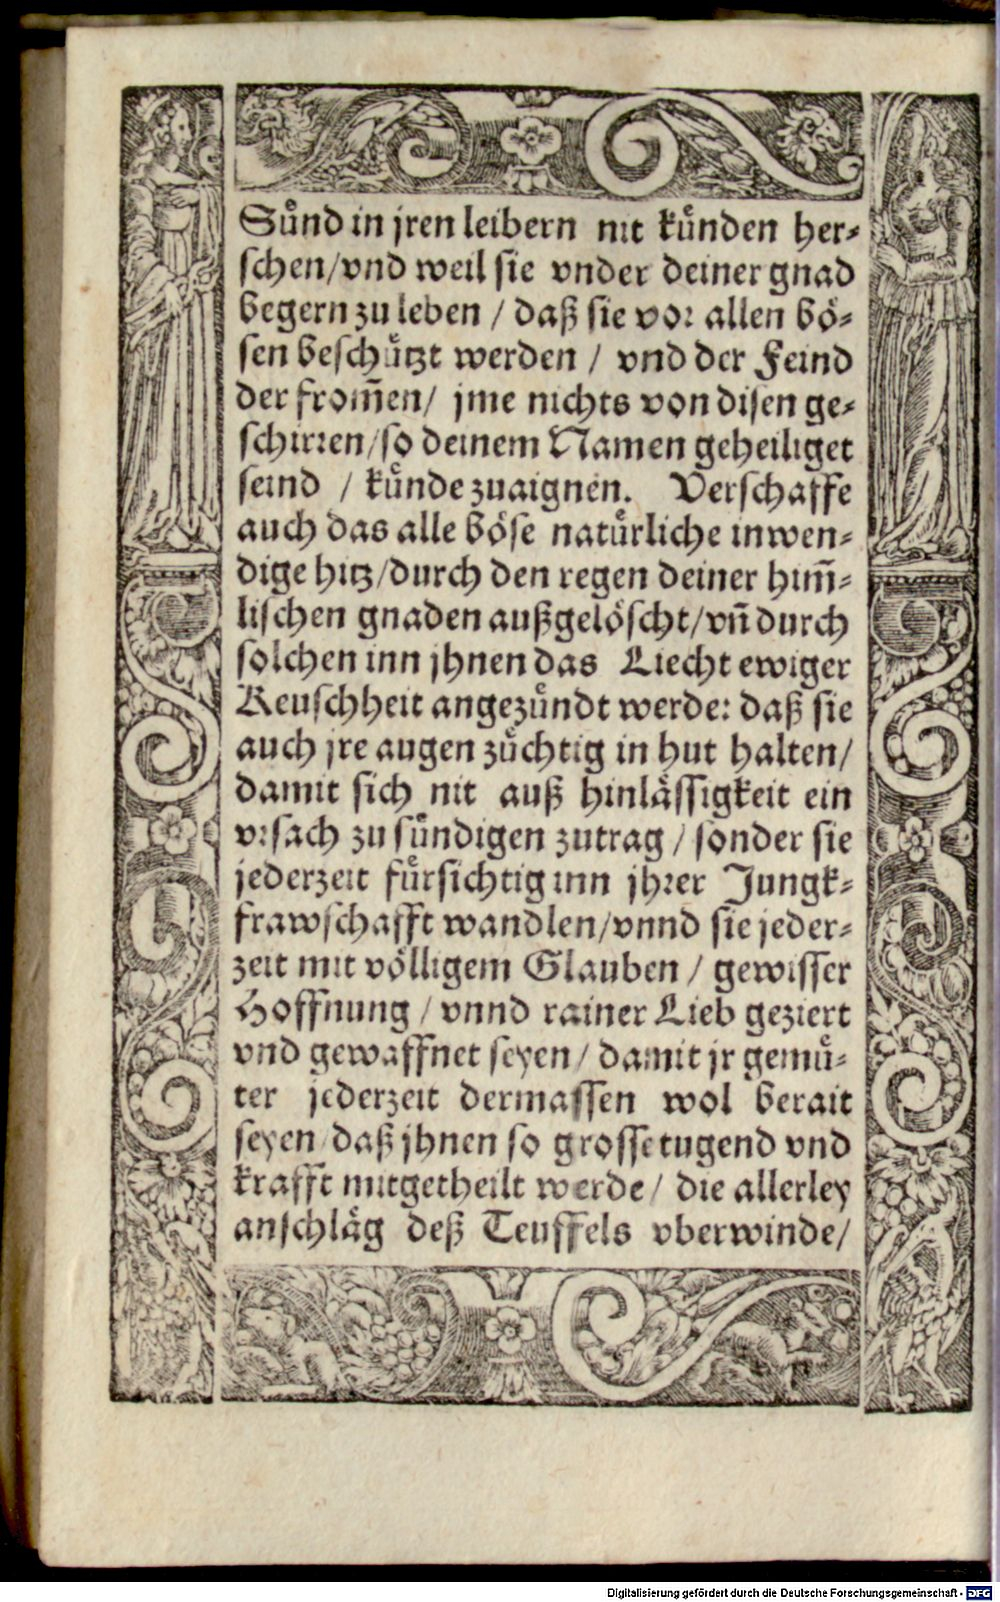 Suͤnd in jren leibern nit kuͤnden her-
schen/vnd weil sie vnder deiner gnad
begern zu leben / daß sie vor allen boͤ-
sen beschuͤtzt werden / vnd der Feind
der from̃en/ jme nichts von disen ge-
schirren/so deinem Namen geheiliget
seind / kuͤnde zuaignen. Verschaffe
auch das alle boͤse natuͤrliche inwen-
dige hitz/durch den regen deiner him̃-
lischen gnaden außgeloͤscht/vñ durch
solchen inn jhnen das Liecht ewiger
Keuschheit angezuͤndt werde: daß sie
auch jre augen zuͤchtig in hut halten/
damit sich nit auß hinlaͤssigkeit ein
vrsach zu suͤndigen zutrag / sonder sie
jederzeit fuͤrsichtig inn jhrer Jungk-
frawschafft wandlen/vnnd sie jeder-
zeit mit voͤlligem Glauben / gewisser
Hoffnung / vnnd rainer Lieb geziert
vnd gewaffnet seyen / damit jr gemuͤ-
ter jederzeit dermassen wol berait
seyen/daß jhnen so grosse tugend vnd
krafft mitgetheilt werde/ die allerley
anschlaͤg deß Teuffels vberwinde/
Digitalisierung gefördert durch die Deutsche Forschungsgemeinschaft - DFG